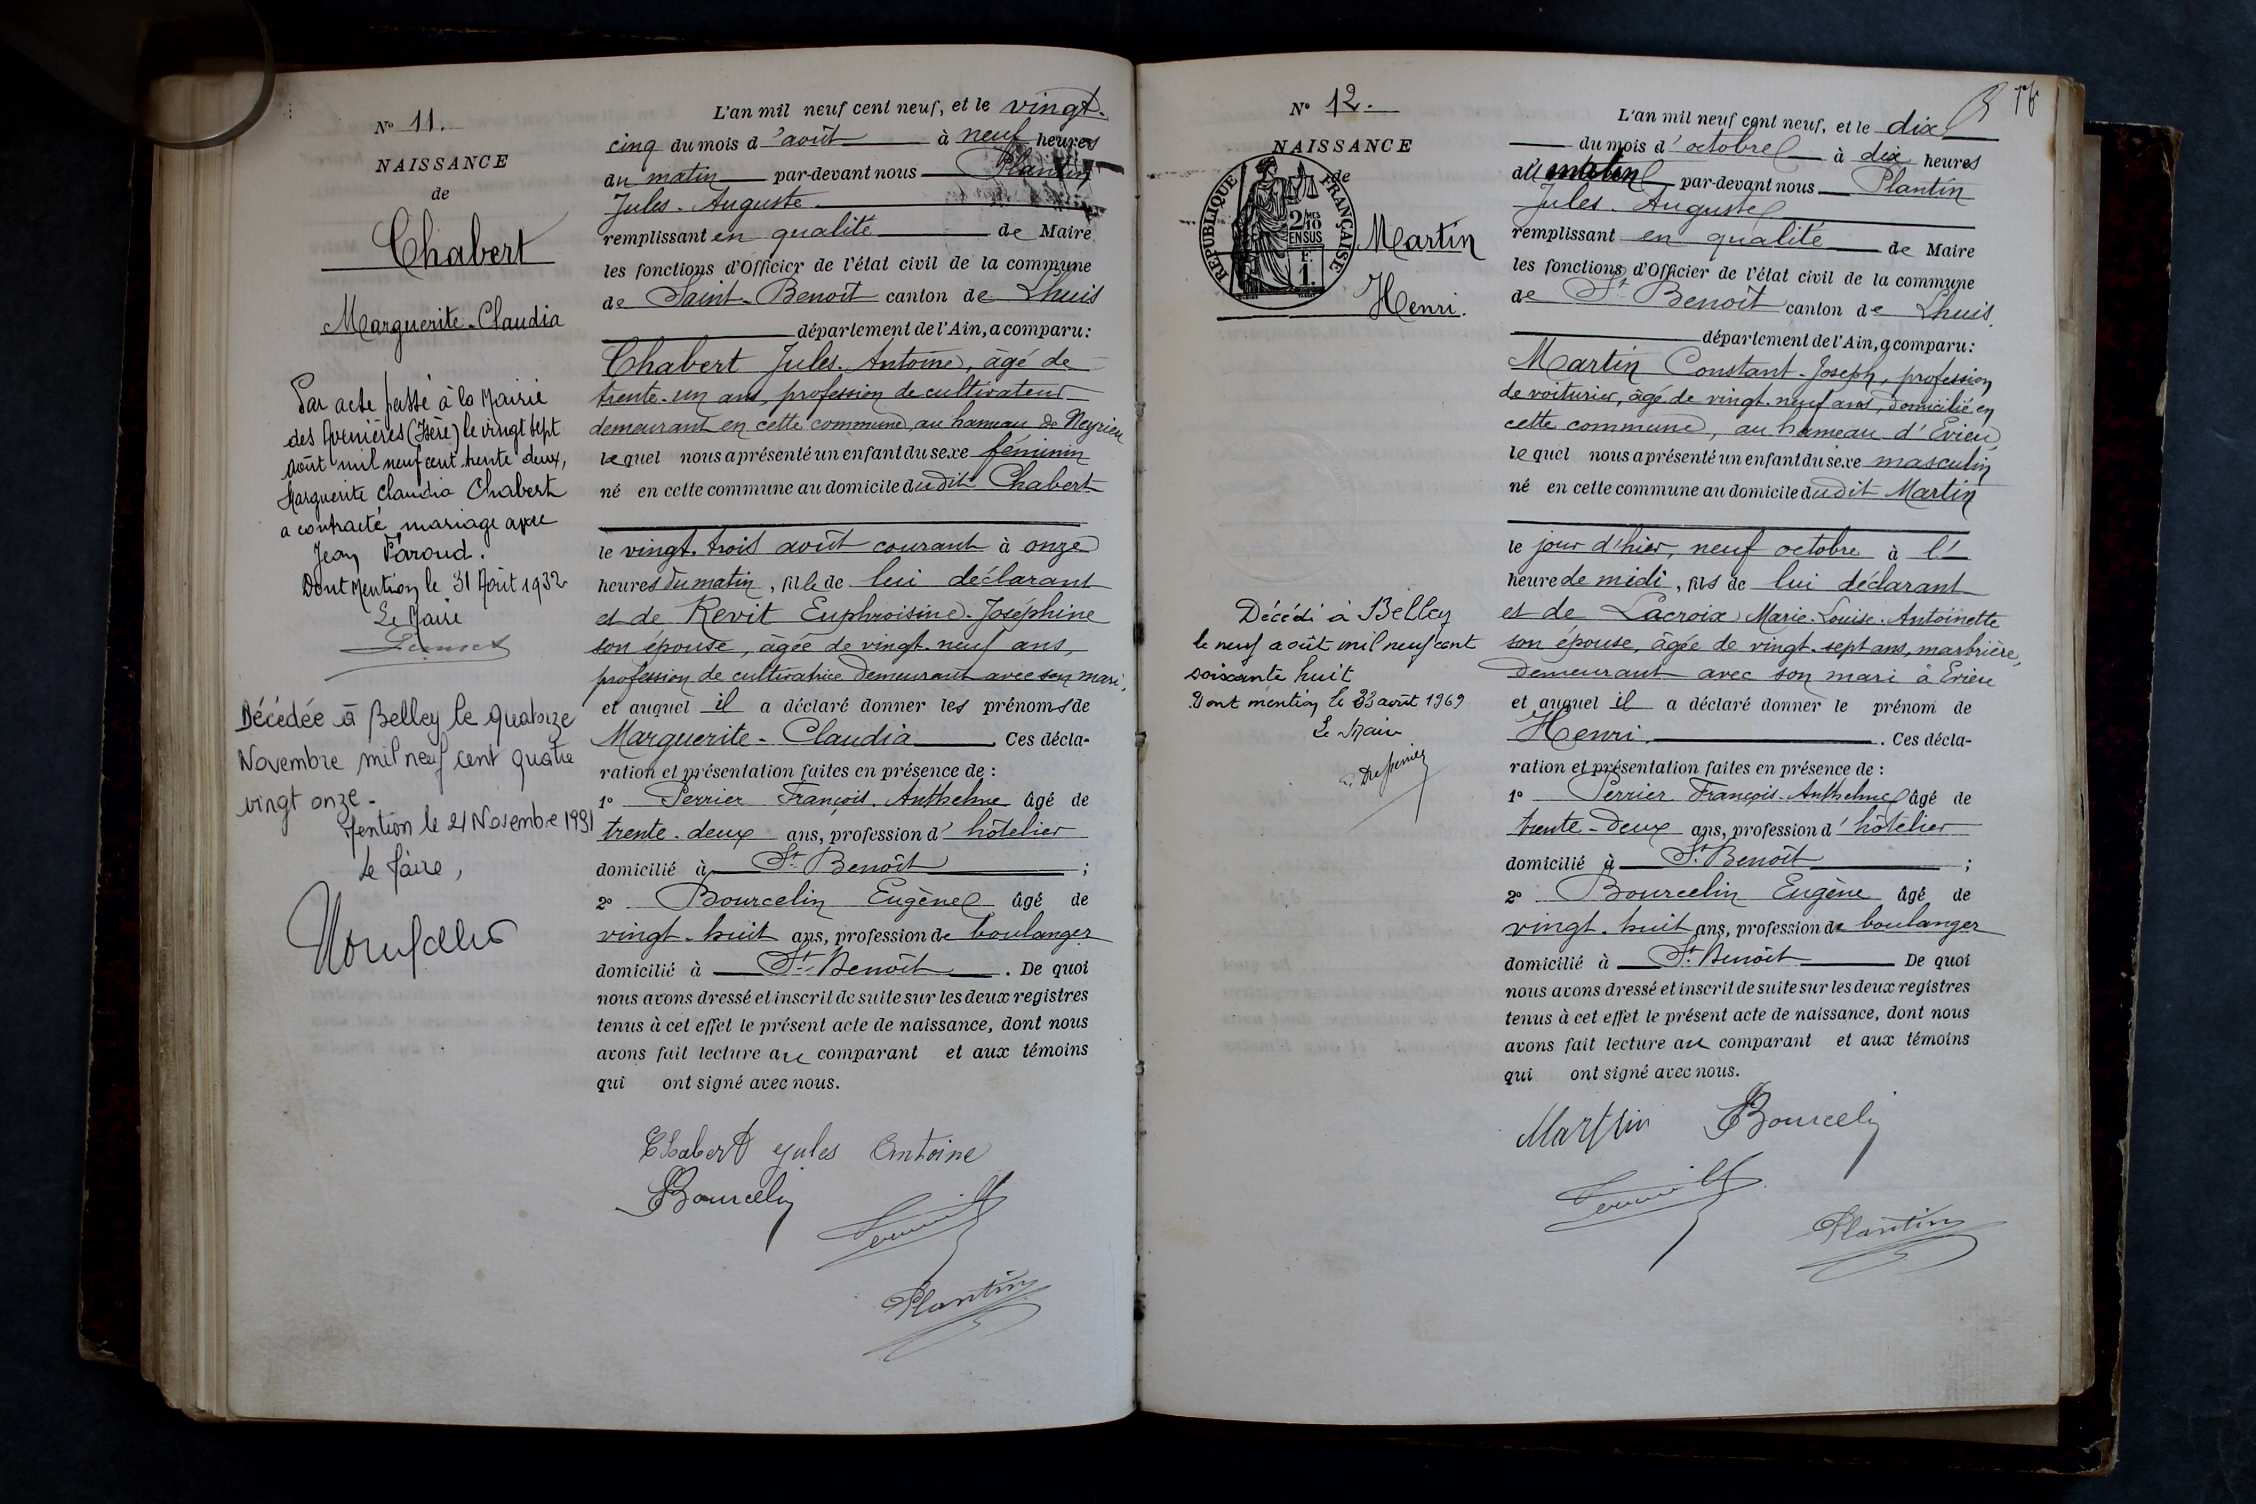 Nº 11.
NAISSANCE
de
Chabert
Marguerite-Claudia
Par acte passé à la Mairie
des Avenières (Isère) le vingt sept
août mil neuf cent trente deux,
Marguerite Claudia Chabert
a contracté mariage avec
Jean Paroud.
Dont Mention le 31 Août 1932
Le Maire
Décédée à Belley le quatorze
Novembre mil neuf cent quatre
vingt onze.
Mention le 21 Novembre 1991
Le Maire,
L'an mil neuf cent neuf, et le vingt-
cinq du mois d'août à neuf heures
du matin par-devant nous Plantin
Jules-Auguste
remplissant en qualité de Maire
les fonctions d'Officier de l'état civil de la commune
de Saint-Benoît canton de Lhuis
département de l'Ain, a comparu:
Chabert Jules-Antoine, âgé de
trente-un ans, profession de cultivateur
demeurant en cette commune au hameau de Neyrieu
lequel nous a présenté un enfant du sexe féminin
né en cette commune au domicile dudit Chabert
le vingt-trois août courant à onze
heures du matin, fille de lui déclarant
et de Revit Euphroisine-Joséphine
son épouse, âgée de vingt-neuf ans,
profession de cultivatrice demeurant avec son mari,
et auquel il a déclaré donner les prénoms de
Marguerite-Claudia. Ces décla-
ration et présentation faites en présence de :
1º Perrier François-Anthelme âgé de
trente-deux ans, profession d'hôtelier
domicilié à St Benoît ;
2º Bourcelin Eugène âgé de
vingt-huit ans, profession de boulanger
domicilié à St-Benoît. De quoi
nous avons dressé et inscrit de suite sur les deux registres
tenus à cet effet le présent acte de naissance, dont nous
avons fait lecture au comparant et aux témoins
qui ont signé avec nous.
Chabert Jules Antoine
Bourcelin
Plantin
Nº 12.
NAISSANCE
de
RÉPUBLIQUE FRANÇAISE
2/10 MES
EN SUS
F.
1.
Martin
Henri.
Décédé à Belley
le neuf août mil neuf cent
soixante huit
Dont mention le 23 août 1969
Le Maire
L'an mil neuf cent neuf, et le dix
du mois d'octobre à dix heures
du matin par-devant nous Plantin
Jules-Auguste
remplissant en qualité de Maire
les fonctions d'Officier de l'état civil de la commune
de St Benoît canton de Lhuis
département de l'Ain, a comparu:
Martin Constant-Joseph, profession
de voiturier, âgé de vingt-neuf ans, domicilié en
cette commune, au hameau d'Evieu
lequel nous a présenté un enfant du sexe masculin
né en cette commune au domicile dudit Martin
le jour d'hier, neuf octobre à l'
heure de midi, fils de lui déclarant
et de Lacroix Marie-Louise-Antoinette
son épouse, âgée de vingt-sept ans, marbrière,
demeurant avec son mari à Evieu
et auquel il a déclaré donner le prénom de
Henri. Ces décla-
ration et présentation faites en présence de :
1º Perrier François-Anthelme âgé de
trente-deux ans, profession d'hôtelier
domicilié à St. Benoît ;
2º Bourcelin Eugène âgé de
vingt-huit ans, profession de boulanger
domicilié à St. Benoît De quoi
nous avons dressé et inscrit de suite sur les deux registres
tenus à cet effet le présent acte de naissance, dont nous
avons fait lecture au comparant et aux témoins
qui ont signé avec nous.
Martin Bourcelin
Plantin